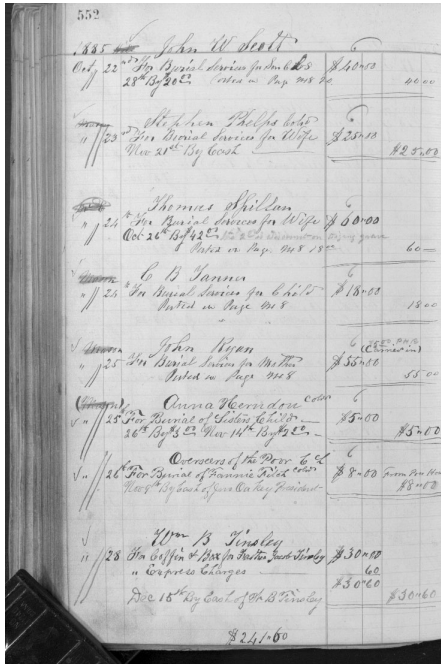 552
1885 John W Scott 6
Oct 22nd For Burial Services for $40.00
28th By Posted on Page 40 00
Stephen Phelps Cold 6
" 23rd For Burial Services for Wife $25.00
Nov 21st By Cash $25.00
Thomas 6
" 24th For Burial Services for Wife $60.00
Oct 26th By $42.00
Posted on Page 18 60
C B Tanner 6
" 24th For Burial Services for Child $18.00
Posted on Page 18 00
John Ryan 6
" 25th For Burial Services for Mother $55.00
Posted on Page 55 00
Anna Herndon Cold 6
" 25th For Burial of Sisters Child $5.00
26th By Nov 14th By $5.00
Overseers of the Poor 6
" 26th For Burial of Fannie Fitch Cold $8.00
Nov 8th By Cash of President $8.00
Wm B Tinsley 6
" 28 For Coffin & Box for Jacob Tinsley $30.00
" Express Charges 60
$30.60
Dec 15th By Cash of W B Tinsley $30.60
$241.60